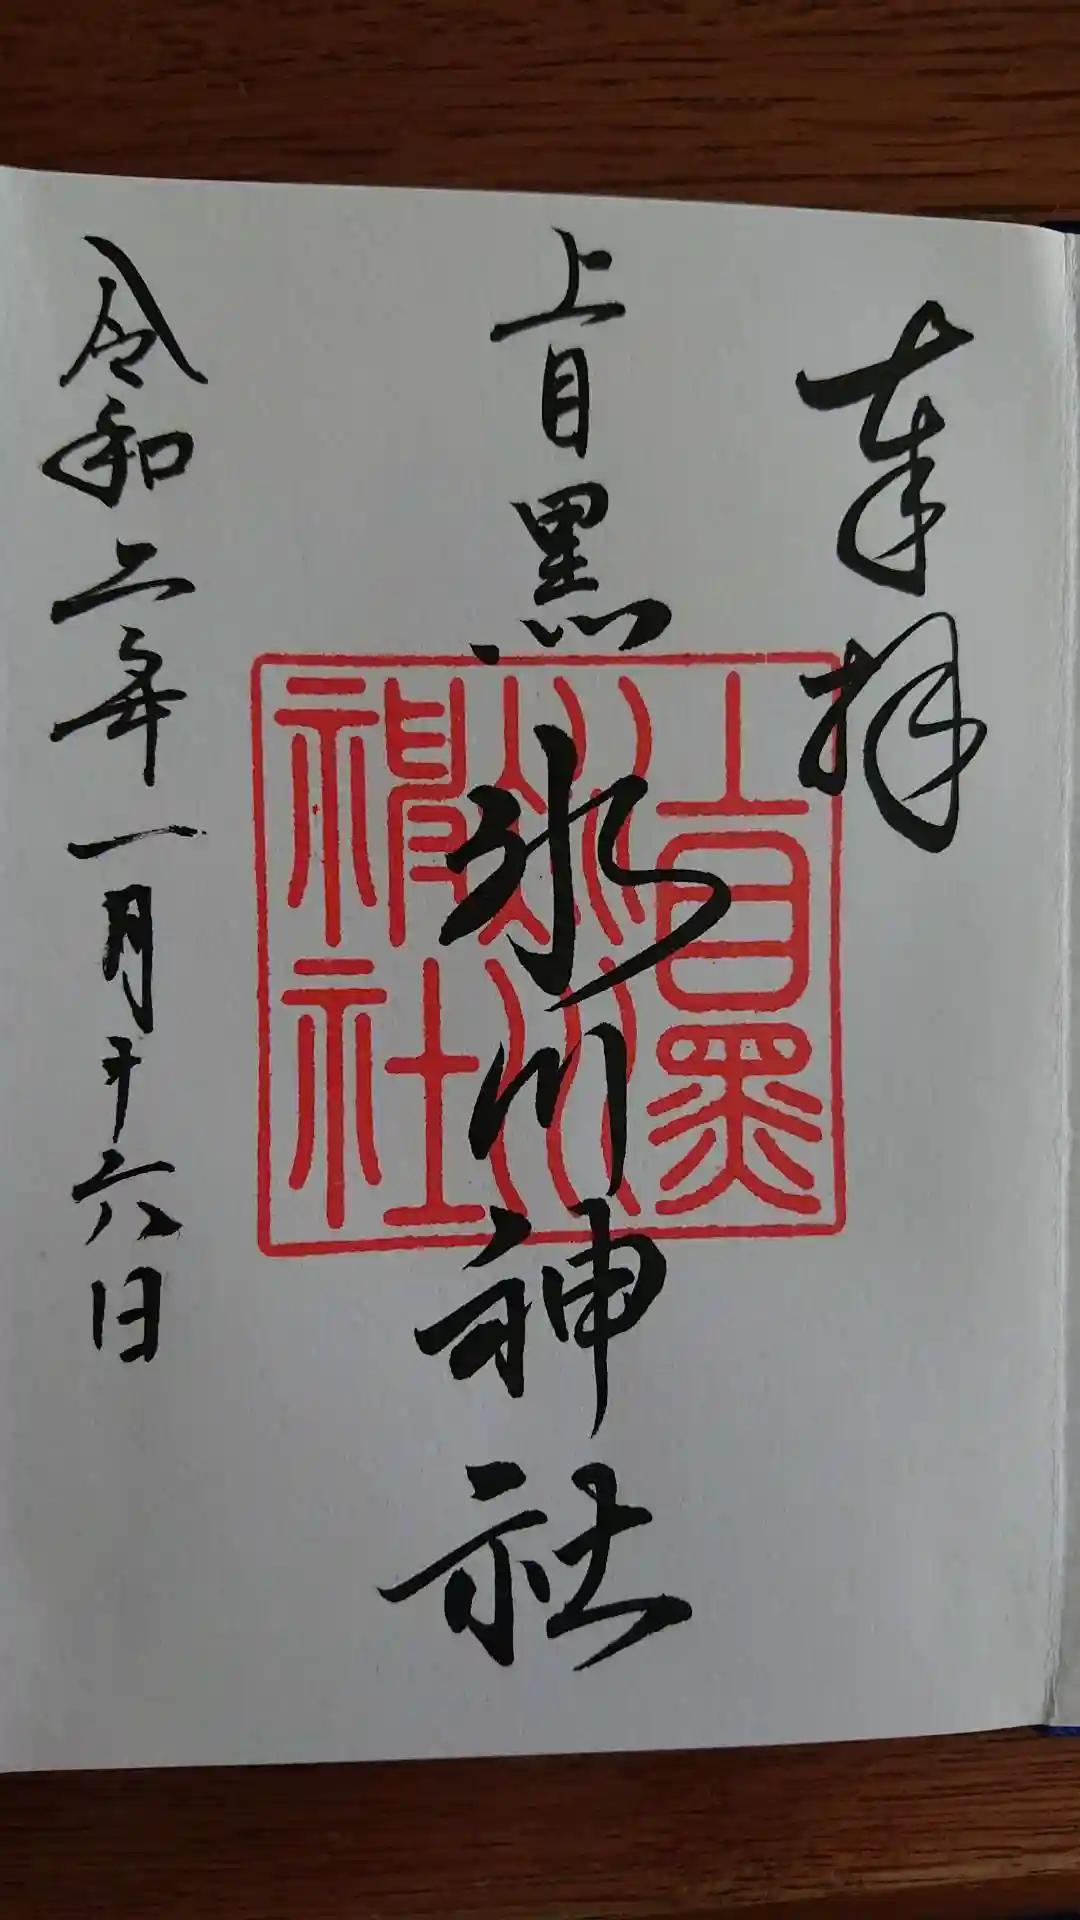 奉拝
上目黒氷川神社
上目黒
氷川
神社
令和二年一月十六日